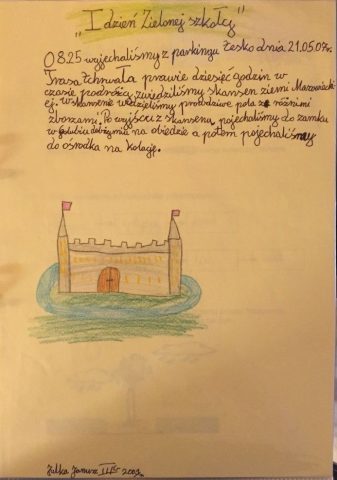 „I dzień Zielonej szkoły"
O 825 wyjechaliśmy z parkingu Tesko dnia 21.05.07r.
Trasa tchwała prawie dziesięć godzin w
czasie podróży zwiedziliśmy skansen ziemi Mazowieck-
iej. w skansenie widzieliśmy prawdziwe pola z różnimi
zborzami. Po wyjściu z skansenu pojechaliśmy do zamku
w Golubiu dobrzyniu na obiedzie a potem pojechaliśmy
do ośrodka na kolację.
Julka Janusz